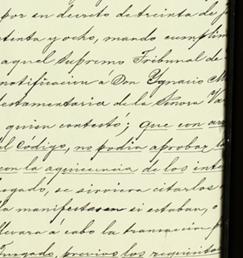 por en decreto de treinta de j
tenta y ocho, mando cumplim
aquel Supremo Tribunal de
notificacion á Don Ygnacio M
testamentaria de la Señora Va
quien contestó; que con ar
el Codigo, no podia aprobar l
con la aquiescencia de los inte
legado, se sirviera citarlos
a manifestasen si estaban, o
llevara á cabo la transaccion, p
Juzgado, previos los requisitos